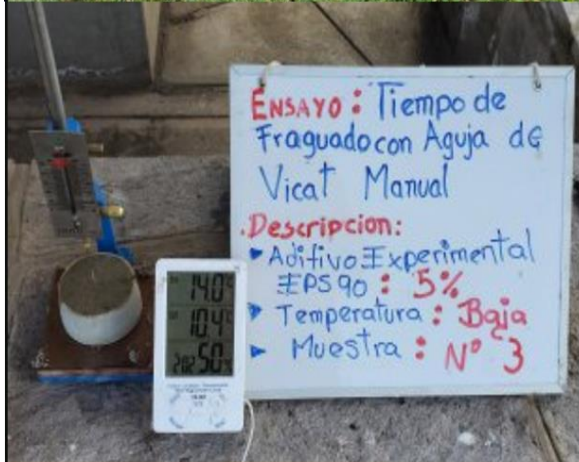 ENSAYO: Tiempo de
Fraguado con Aguja de
Vicat Manual
Descripcion:
▸ Aditivo Experimental
EPS 90: 5%
▸ Temperatura: Baja
▸ Muestra: N° 3
14.0°
10.4°
50%